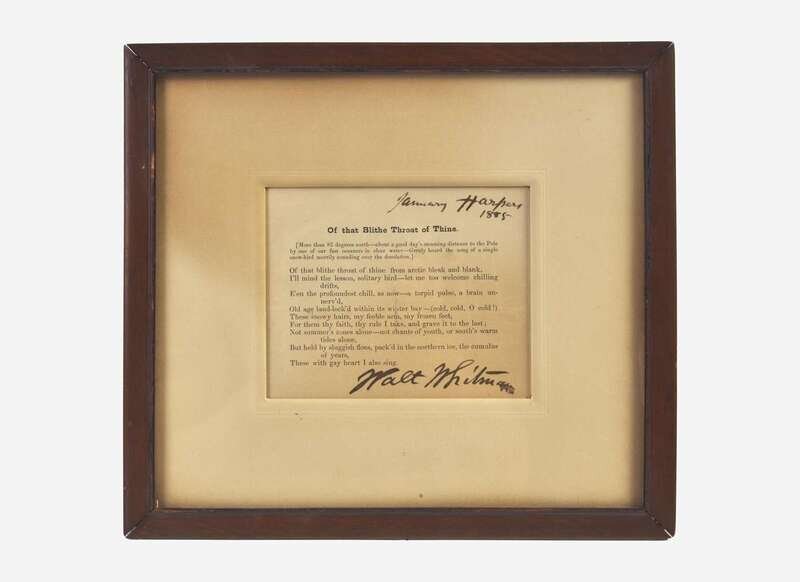 January Harpers
1885
Of that Blithe Throat of Thine.
[More than 83 degrees north—about a good day's steaming distance to the Pole
by one of our fast oceaners in clear water—Greely heard the song of a single
snow-bird merrily sounding over the desolation.]
Of that blithe throat of thine from arctic bleak and blank,
I'll mind the lesson, solitary bird—let me too welcome chilling
drifts,
E'en the profoundest chill, as now—a torpid pulse, a brain un-
nerv'd,
Old age land-lock'd within its winter bay—(cold, cold, O cold!)
These snowy hairs, my feeble arm, my frozen feet,
For them thy faith, thy rule I take, and grave it to the last;
Not summer's zones alone—not chants of youth, or south's warm
tides alone,
But held by sluggish floes, pack'd in the northern ice, the cumulus
of years,
These with gay heart I also sing.
Walt Whitman